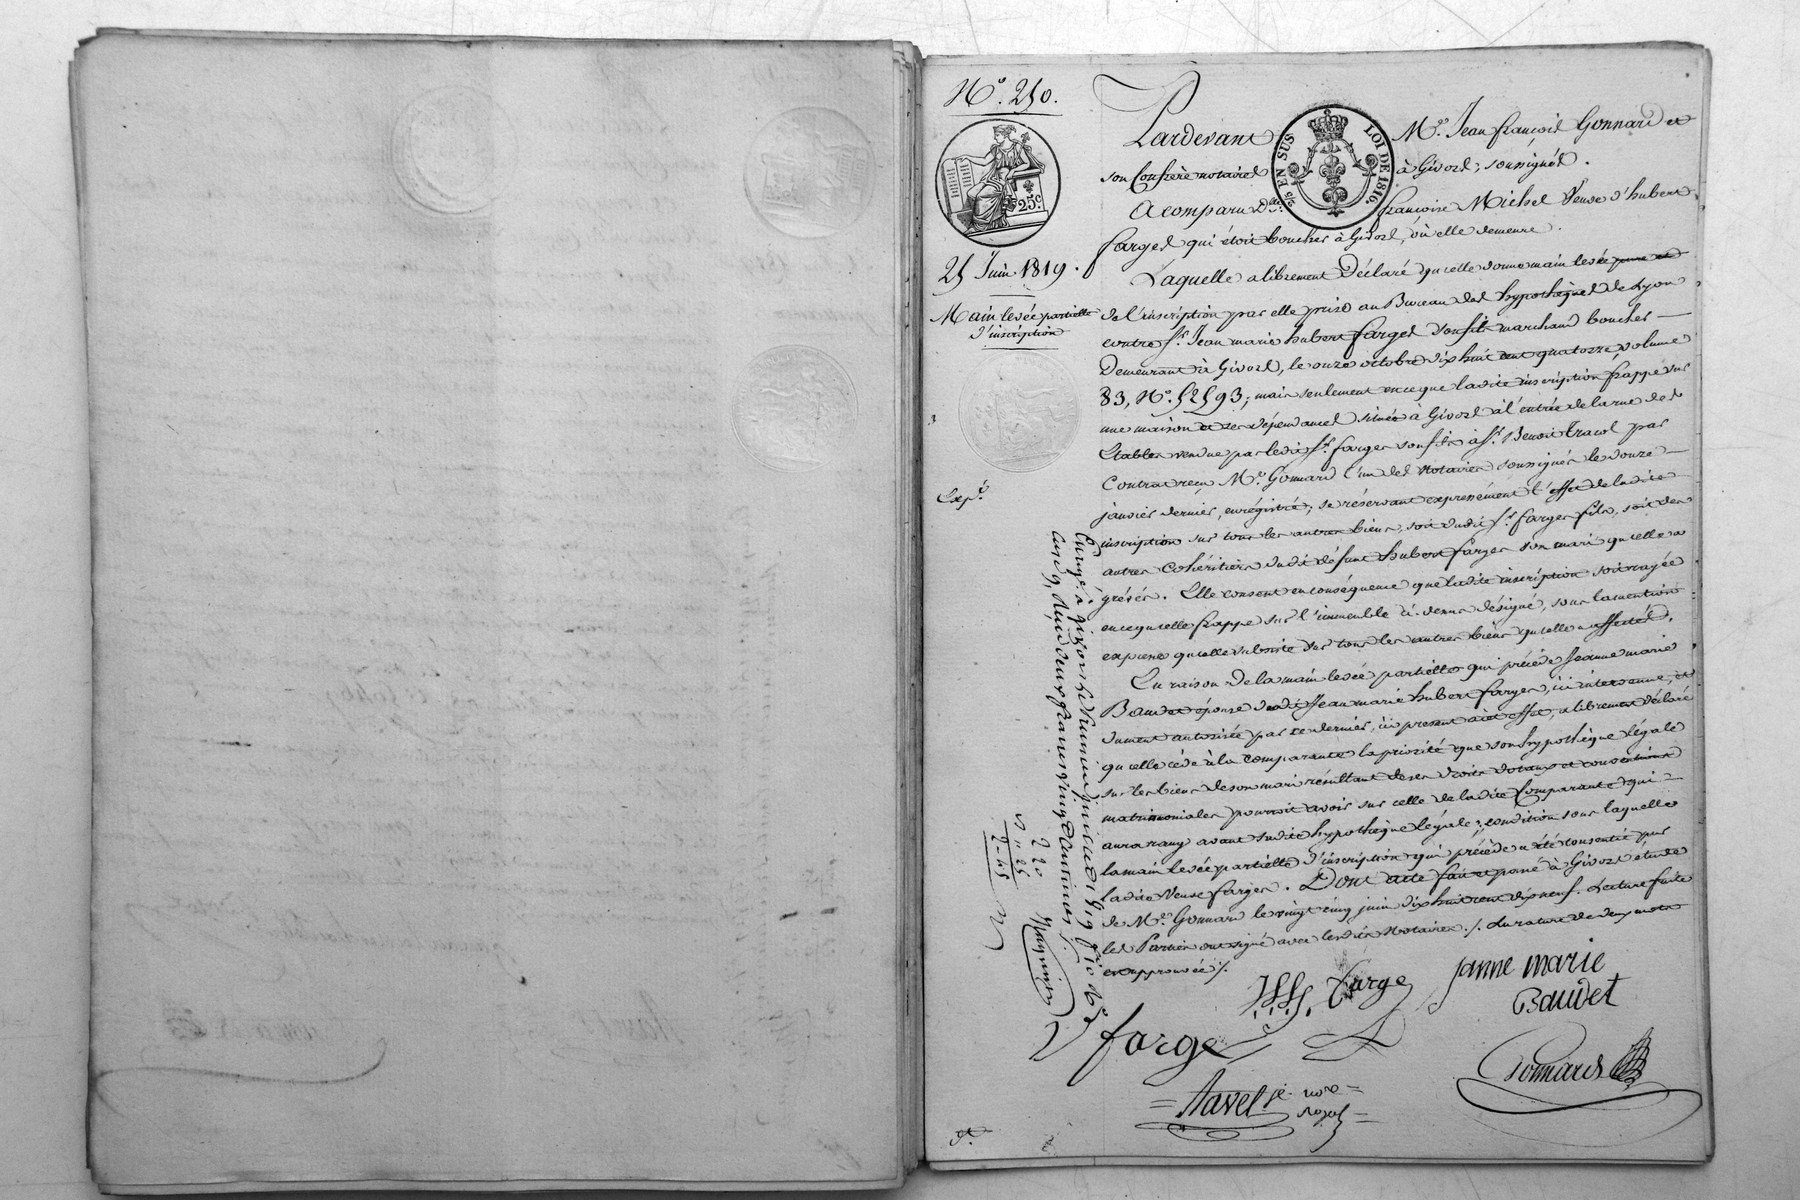 N.º 250.
25 Juin 1819.
Main levée partielle
d'inscription
25.c
5/6 EN SUS
LOI DE 1816.
Exp.é
Pardevant M.e Jean françois Gonnard et
son Confrère notaires à Givors ; soussignés.
A comparu D.e françoise Michel Veuve d'hubert
farges qui étoit boucher à Givors, où elle demeure.
Laquelle a librement Déclaré qu'elle donne main levée pure et
de l'inscription par elle prise au Bureau des hypothèques de Lyon
contre S.r Jean marie hubert farges son fils marchand boucher
Demeurant à Givors, le onze octobre dix huit cent quatorze, volume
83, N.º 52593 ; mais seulement en ce que ladite inscription frappe sur
une maison et ses dépendances située à Givors à l'entrée de la rue des
Etables vendue par ledit S.r farges son fils à S.r Benoit Tracol par
Contrat reçu M.e Gonnard l'un des Notaires soussignés le douze
janvier dernier, enregistré ; se réservant expressément l'effet de ladite
inscription sur tous les autres biens, soit dudit S.r farges fils, soit des
autres Cohéritiers dudit défunt hubert farges son mari qu'elle a
grévés. Elle consent en conséquence que ladite inscription soit rayée
en ce qu'elle frappe sur l'immeuble ci-dessus désigné, sous la mention
expresse qu'elle subsiste sur tous les autres biens qu'elle a affectés.
En raison de la main levée partielle qui précède Jeanne marie
Baudet épouse dudit Jean marie hubert farges, ici intervenue, et
dument autorisée par ce dernier, ici présent à cet effet, a librement déclaré
qu'elle cède à la comparante la priorité que son hypothèque légale
sur les biens de son mari résultant de ses droits dotaux et conventions
matrimoniales pourroit avoir sur celle de ladite Comparante qui
aura rang avant sadite hypothèque légale ; condition sous laquelle
la main levée partielle d'inscription qui précède a été consentie par
ladite Veuve farges. Dont acte fait et passé à Givors étude
de M.e Gonnard le vingt cinq juin dix huit cent dix neuf. Lecture faite
les Parties ont signé avec lesdits Notaires ./. La rature de deux mots
est approuvée ./.
farge
janne marie
Baudet
farge
Gonnard
Navel je. nore
royal
Enregé. à givors le juin 1819 fº 10
reçu deux francs vingt centimes
2 20
" 25
2-45